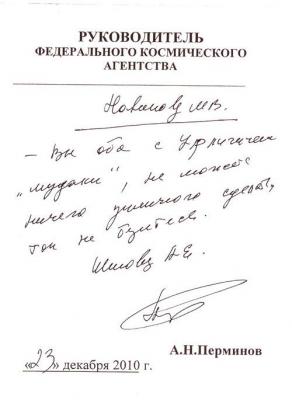 РУКОВОДИТЕЛЬ
ФЕДЕРАЛЬНОГО КОСМИЧЕСКОГО
АГЕНТСТВА
М.В.
– Вы оба с
„мудаки“, не можете
ничего сделать,
так не беритесь.
Шилову А.Е.
А.Н.Перминов
«23» декабря 2010 г.